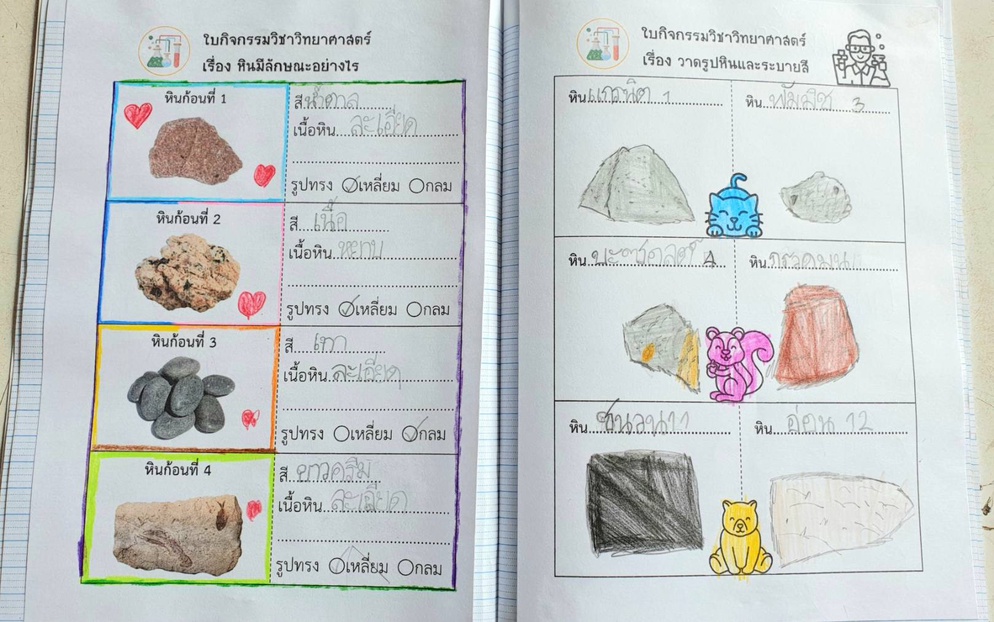 ใบกิจกรรมวิชาวิทยาศาสตร์
เรื่อง หินมีลักษณะอย่างไร
หินก้อนที่ 1
สี น้ำตาล
เนื้อหิน ละเอียด
รูปทรง เหลี่ยม กลม
หินก้อนที่ 2
สี เนื้อ
เนื้อหิน หยาบ
รูปทรง เหลี่ยม กลม
หินก้อนที่ 3
สี เทา
เนื้อหิน ละเอียด
รูปทรง เหลี่ยม กลม
หินก้อนที่ 4
สี ขาวครีม
เนื้อหิน ละเอียด
รูปทรง เหลี่ยม กลม
ใบกิจกรรมวิชาวิทยาศาสตร์
เรื่อง วาดรูปหินและระบายสี
หิน แกรนิต 1
หิน พัมมิช 3
หิน 4
หิน กรวดมน
หิน ชนวน 11
หิน อ่อน 12